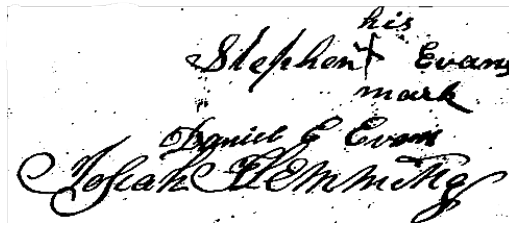 his
Stephen X Evans
mark
Daniel E Evans
Josiah Flemming